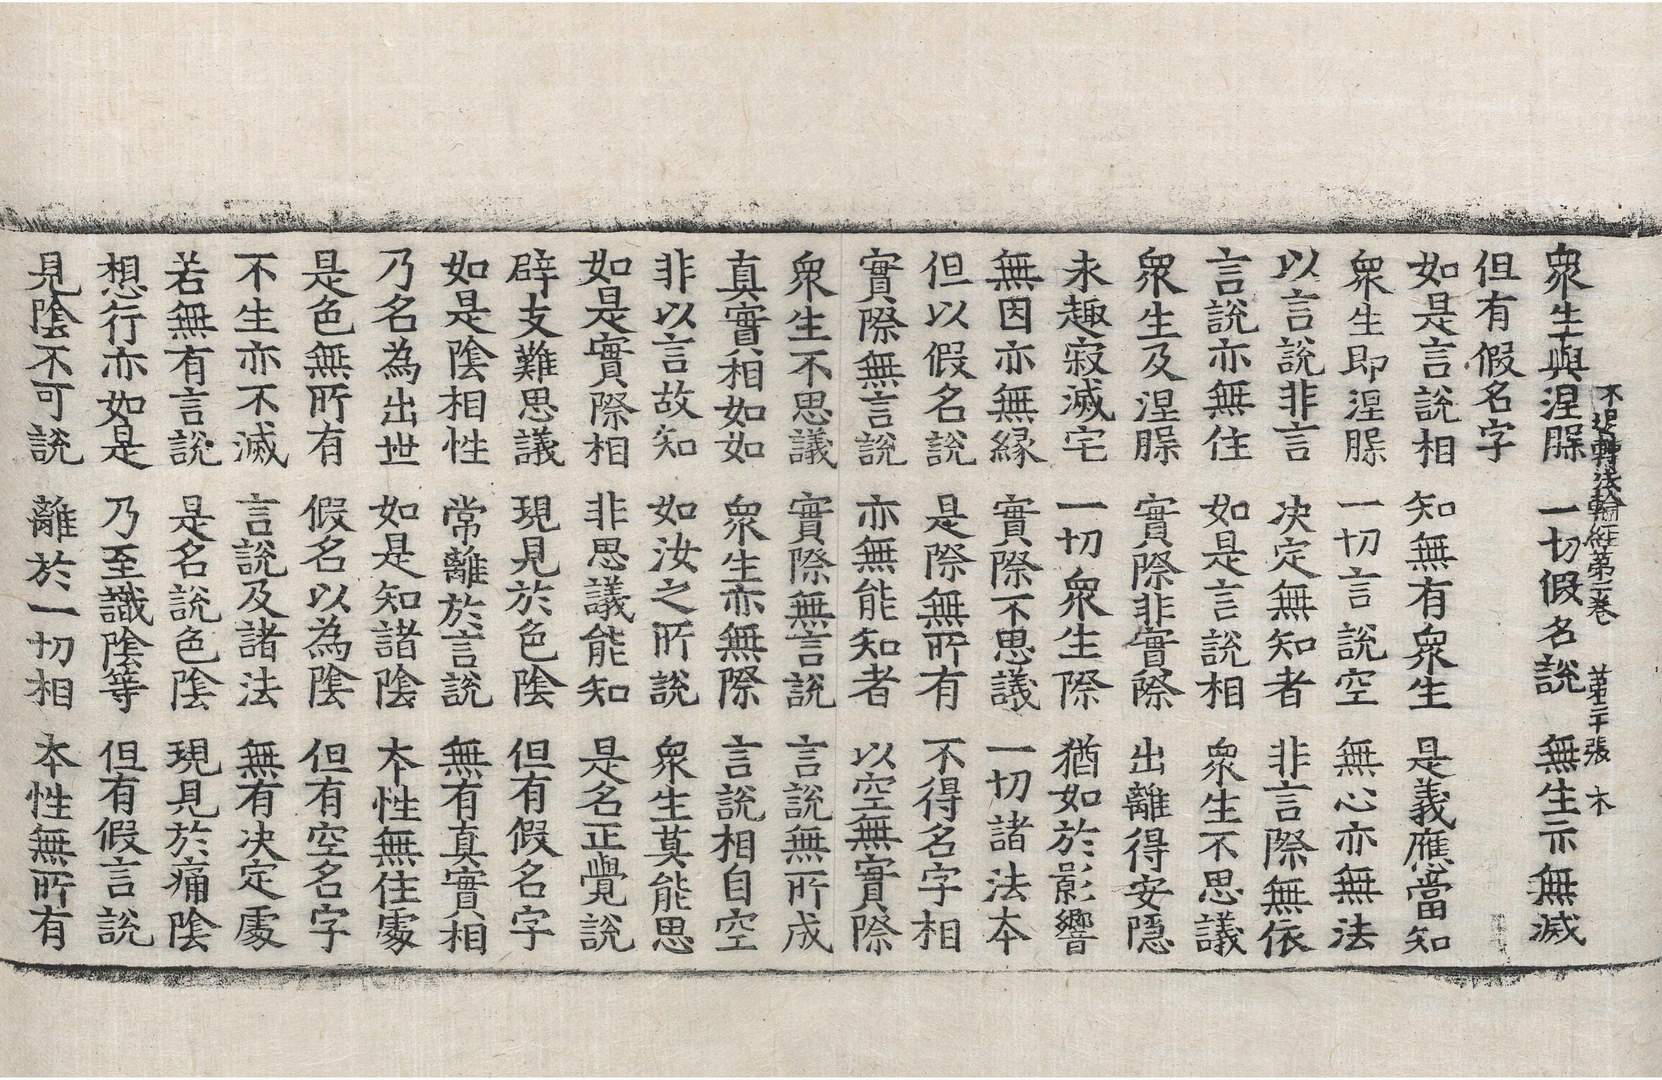 不退轉法輪経第二卷　苐二十張　木
衆生與涅槃　一切假名說　無生亦無滅
但有假名字
如是言說相　知無有衆生　是義應當知
衆生即涅槃　一切言說空　無心亦無法
以言說非言　決定無知者　非言際無依
言說亦無住　如是言說相　衆生不思議
衆生及涅槃　實際非實際　出離得安隱
永趣寂滅宅　一切衆生際　猶如於影響
無因亦無縁　實際不思議　一切諸法本
但以假名說　是際無所有　不得名字相
實際無言說　亦無能知者　以空無實際
衆生不思議　實際無言說　言說無所成
真實相如如　衆生亦無際　言說相自空
非以言故知　如汝之所說　衆生莫能思
如是實際相　非思議能知　是名正覺說
辟支難思議　現見於色陰　但有假名字
如是陰相性　常離於言說　無有真實相
乃名為出世　如是知諸陰　本性無住處
是色無所有　假名以為陰　但有空名字
不生亦不滅　言說及諸法　無有決定處
若無有言說　是名說色陰　現見於痛陰
想行亦如是　乃至識陰等　但有假言說
見陰不可說　離於一切相　本性無所有